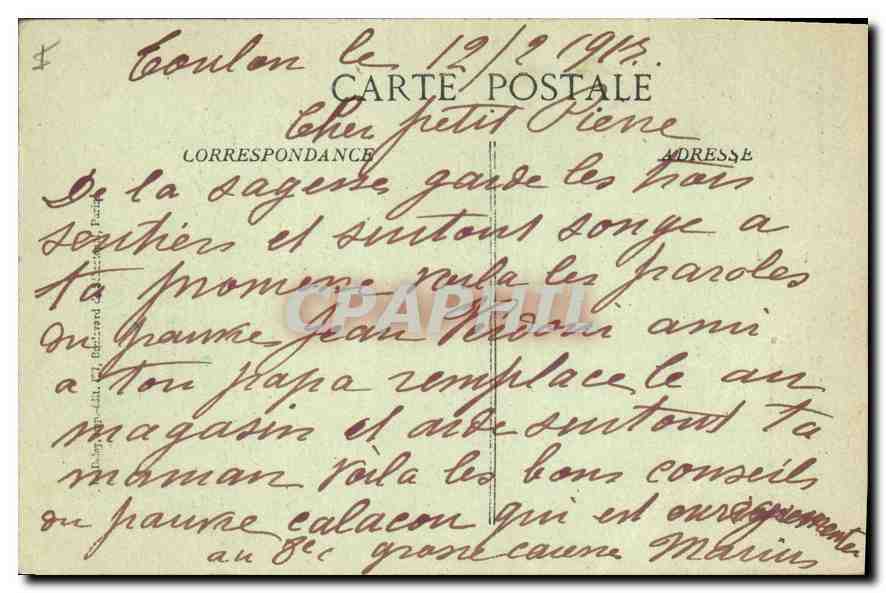 Toulon le 12/2 1913.
CARTE POSTALE
Cher petit Pierre
CORRESPONDANCE
ADRESSE
De la sagesse garde les trois
sentiers et surtout songe a
ta promesse voila les paroles
du pauvre Jean ami
a ton papa remplace le au
magasin et aide surtout ta
maman voila les bons conseils
du pauvre calacon qui est
au 8e grosse caisse Marius
CPAPHIL